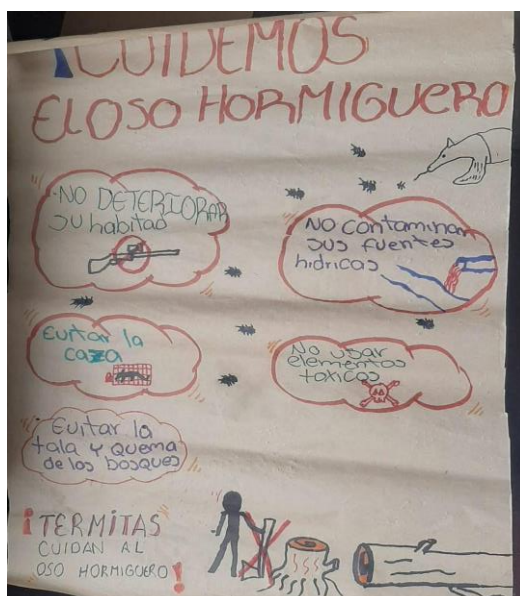 ¡CUIDEMOS
EL OSO HORMIGUERO
-NO DETERIORAR
su habitad
NO contaminar
sus fuentes
hidricas
Evitar la
caza
No usar
elementos
toxicos
Evitar la
tala y quema
de los bosques
¡TERMITAS
CUIDAN AL
OSO HORMIGUERO!